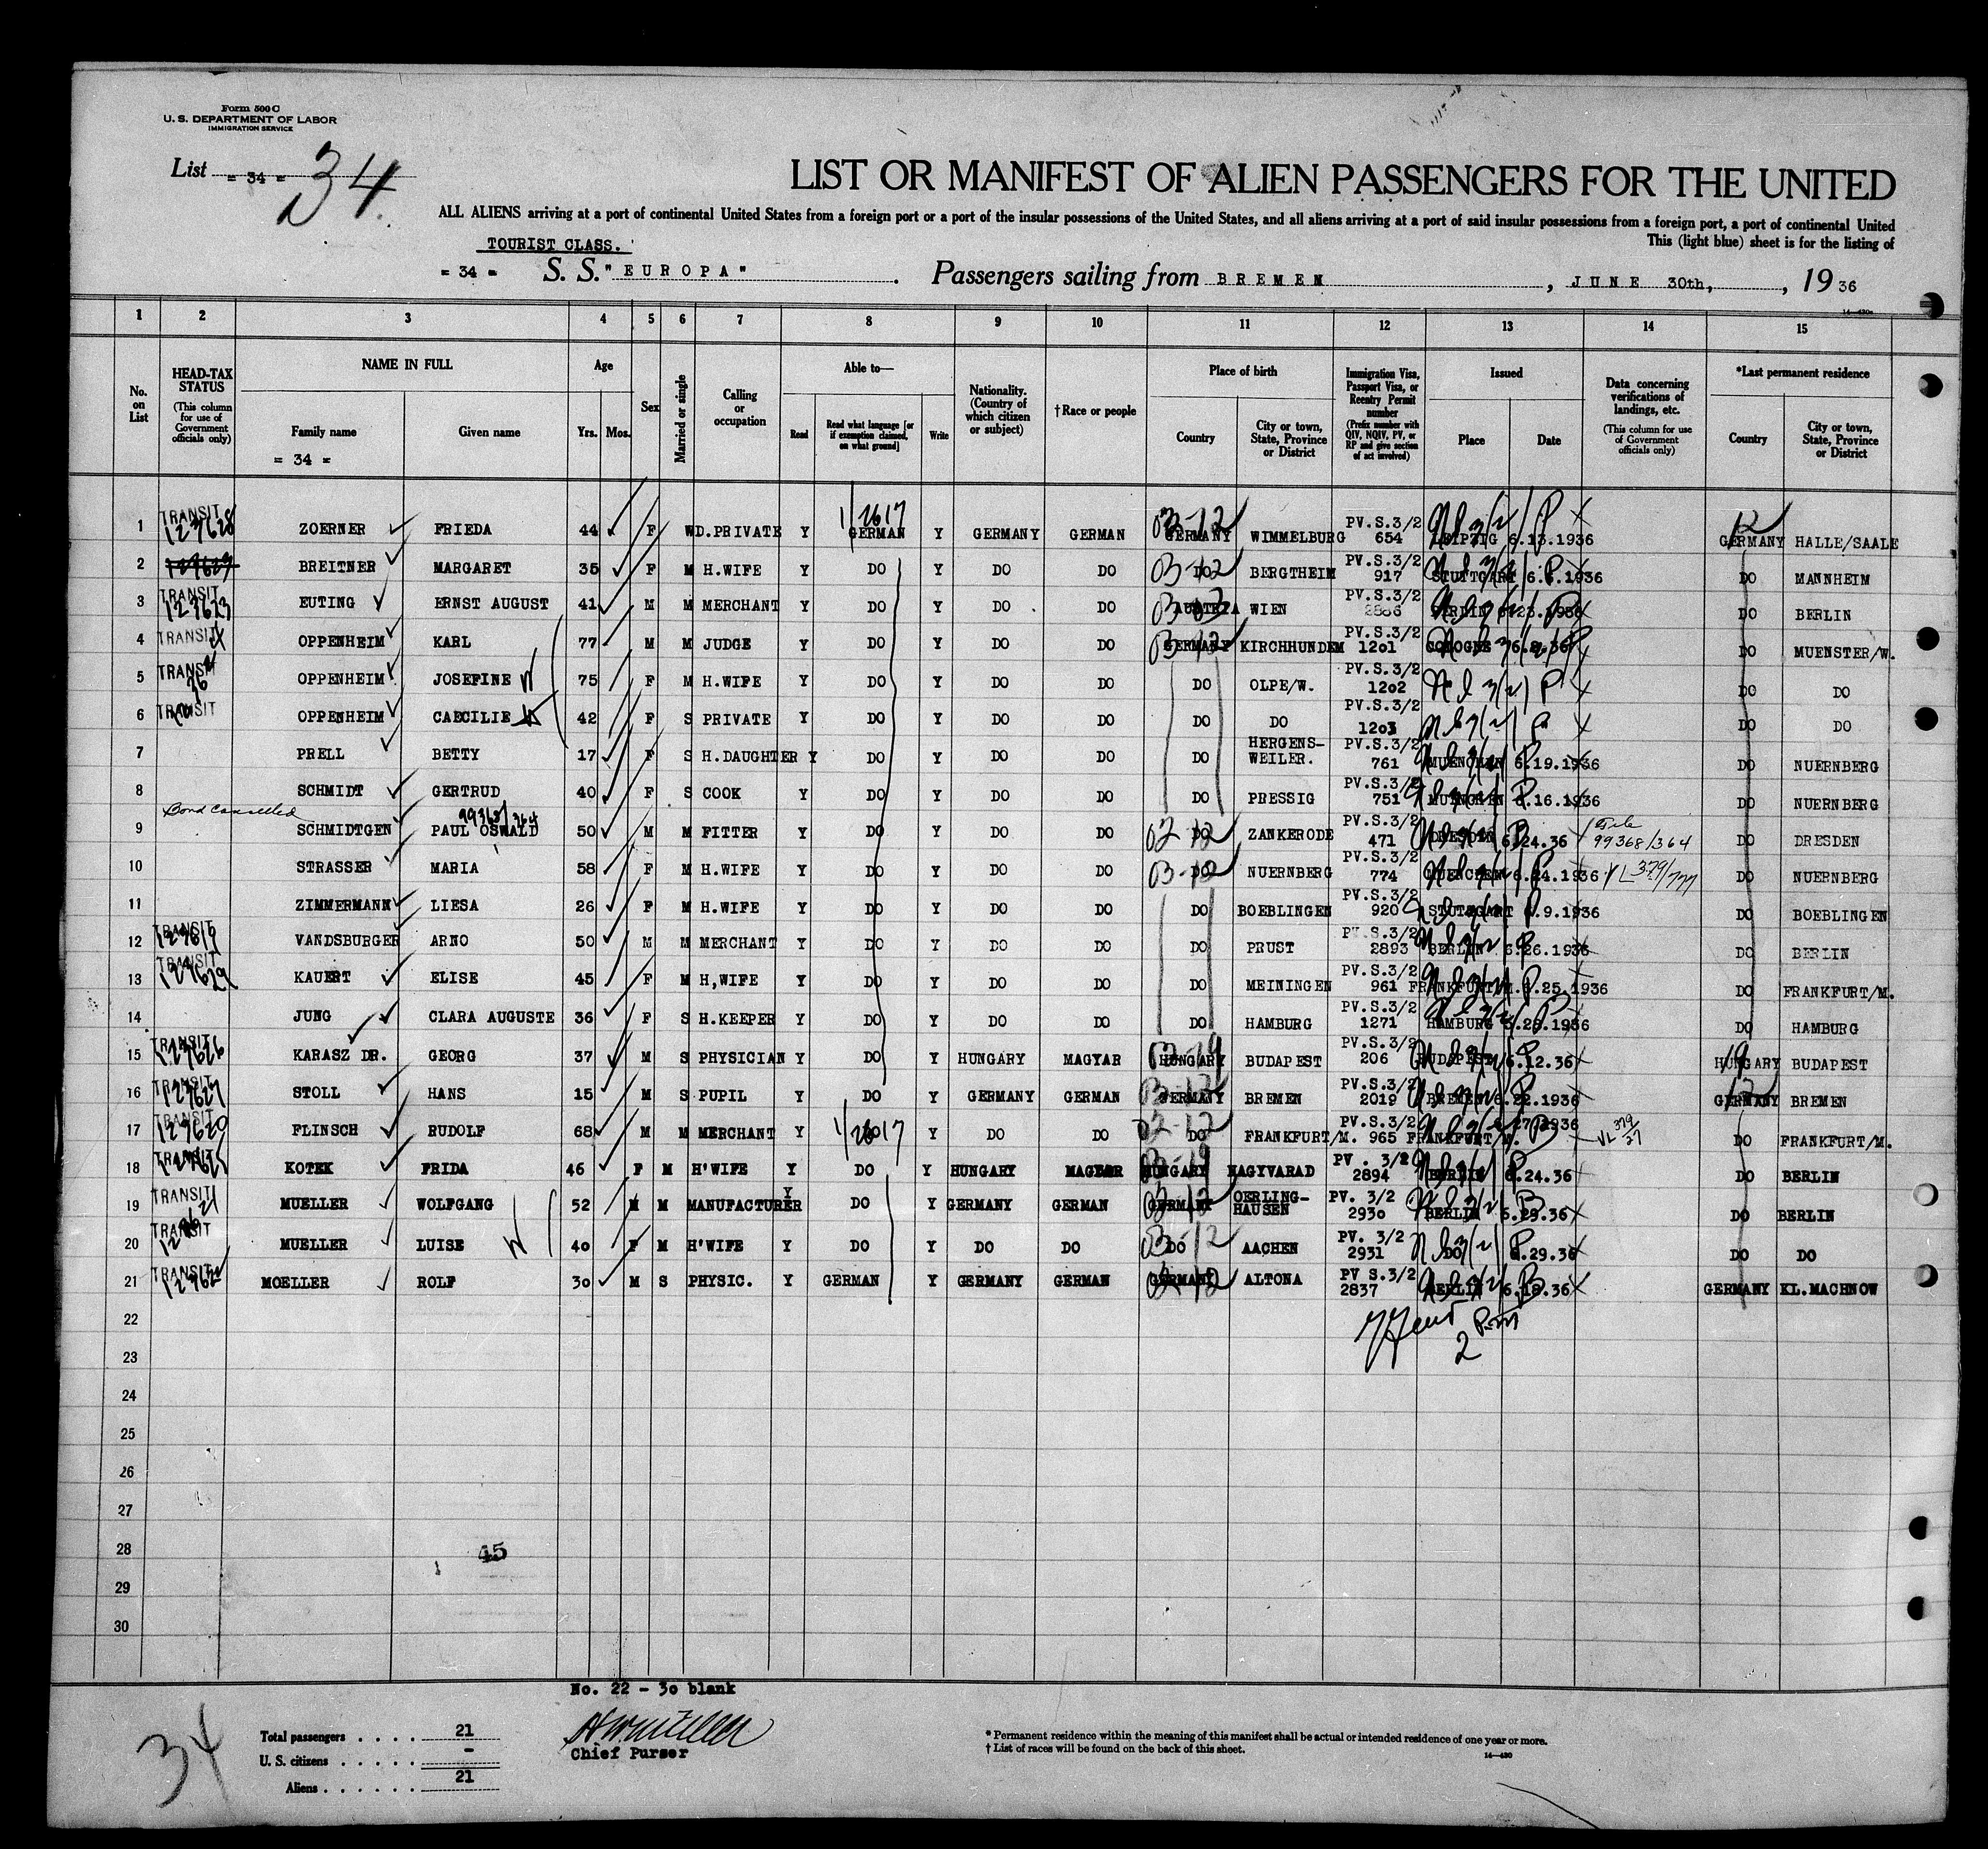 Form 500 C
U. S. DEPARTMENT OF LABOR
IMMIGRATION SERVICE
List = 34 = 34
LIST OR MANIFEST OF ALIEN PASSENGERS FOR THE UNITED
ALL ALIENS arriving at a port of continental United States from a foreign port or a port of the insular possessions of the United States, and all aliens arriving at a port of said insular possessions from a foreign port, a port of continental United
TOURIST CLASS. This (light blue) sheet is for the listing of
= 34 = S. S. "EUROPA" Passengers sailing from BREMEN, JUNE 30th, , 19 36
14—430a
1 2 3 4 5 6 7 8 9 10 11 12 13 14 15
No. on List
HEAD-TAX STATUS (This column for use of Government officials only)
NAME IN FULL Family name Given name
= 34 =
Age Yrs. Mos.
Sex
Married or single
Calling or occupation
Able to— Read Read what language [or if exemption claimed, on what ground] Write
Nationality. (Country of which citizen or subject)
†Race or people
Place of birth Country City or town, State, Province or District
Immigration Visa, Passport Visa, or Reentry Permit number (Prefix number with QIV, NQIV, PV, or RP and give section of act involved)
Issued Place Date
Data concerning verifications of landings, etc. (This column for use of Government officials only)
*Last permanent residence Country City or town, State, Province or District
1 TRANSIT 127628 ZOERNER FRIEDA 44 F WD. PRIVATE Y GERMAN Y GERMANY GERMAN GERMANY WIMMELBURG PV.S.3/2 654 LEIPZIG 6.13.1936 GERMANY HALLE/SAALE
2 BREITNER MARGARET 35 F M H.WIFE Y DO Y DO DO DO BERGTHEIM PV.S.3/2 917 STUTTGART 6.6.1936 DO MANNHEIM
3 TRANSIT 127623 EUTING ERNST AUGUST 41 M M MERCHANT Y DO Y DO DO AUSTRIA WIEN PV.S.3/2 2866 BERLIN 6.23.1936 DO BERLIN
4 TRANSIT OPPENHEIM KARL 77 M M JUDGE Y DO Y DO DO GERMANY KIRCHHUNDEM PV.S.3/2 1201 COLOGNE 6.9.36 DO MUENSTER/W.
5 TRANSIT OPPENHEIM JOSEFINE 75 F M H.WIFE Y DO Y DO DO DO OLPE/W. PV.S.3/2 1202 DO DO
6 TRANSIT OPPENHEIM CAECILIE 42 F S PRIVATE Y DO Y DO DO DO DO PV.S.3/2 1203 DO DO
7 PRELL BETTY 17 F S H.DAUGHTER Y DO Y DO DO DO HERGENS-WEILER. PV.S.3/2 761 MUENCHEN 6.19.1936 DO NUERNBERG
8 SCHMIDT GERTRUD 40 F S COOK Y DO Y DO DO DO PRESSIG PV.S.3/2 751 MUENCHEN 6.16.1936 DO NUERNBERG
Bond Cancelled 99368/364
9 SCHMIDTGEN PAUL OSWALD 50 M M FITTER Y DO Y DO DO DO ZANKERODE PV.S.3/2 471 DRESDEN 6.24.36 File 99368/364 DO DRESDEN
10 STRASSER MARIA 58 F M H.WIFE Y DO Y DO DO DO NUERNBERG PV.S.3/2 774 MUENCHEN 6.24.1936 VL 379/777 DO NUERNBERG
11 ZIMMERMANN LIESA 26 F M H.WIFE Y DO Y DO DO DO BOEBLINGEN PV.S.3/2 920 STUTTGART 6.9.1936 DO BOEBLINGEN
12 TRANSIT VANDSBURGER ARNO 50 M M MERCHANT Y DO Y DO DO DO PRUST PV.S.3/2 2893 BERLIN 6.26.1936 DO BERLIN
13 TRANSIT 127629 KAUERT ELISE 45 F M H,WIFE Y DO Y DO DO DO MEININGEN PV.S.3/2 961 FRANKFURT/M. 6.25.1936 DO FRANKFURT/M.
14 JUNG CLARA AUGUSTE 36 F S H.KEEPER Y DO Y DO DO DO HAMBURG PV.S.3/2 1271 HAMBURG 6.26.1936 DO HAMBURG
15 TRANSIT 127626 KARASZ DR. GEORG 37 M S PHYSICIAN Y DO Y HUNGARY MAGYAR HUNGARY BUDAPEST PV.S.3/2 206 BUDAPEST 6.12.36 HUNGARY BUDAPEST
16 TRANSIT 127627 STOLL HANS 15 M S PUPIL Y DO Y GERMANY GERMAN GERMANY BREMEN PV.S.3/2 2019 BREMEN 6.22.1936 GERMANY BREMEN
17 TRANSIT 127620 FLINSCH RUDOLF 68 M M MERCHANT Y DO Y DO DO DO FRANKFURT/M. PV.S.3/2 965 FRANKFURT/M. 6.27.1936 VL 379/27 DO FRANKFURT/M.
18 TRANSIT 127625 KOTEK FRIDA 46 F M H'WIFE Y DO Y HUNGARY MAGYAR HUNGARY NAGYVARAD PV . 3/2 2894 BERLIN 6.24.36 DO BERLIN
19 TRANSIT MUELLER WOLFGANG 52 M M MANUFACTURER Y DO Y GERMANY GERMAN GERMANY OERLING-HAUSEN PV. 3/2 2930 BERLIN 6.29.36 DO BERLIN
20 TRANSIT MUELLER LUISE 40 F M H'WIFE Y DO Y DO DO DO AACHEN PV. 3/2 2931 DO 6.29.36 DO DO
21 TRANSIT MOELLER ROLF 30 M S PHYSIC. Y GERMAN Y GERMANY GERMAN GERMANY ALTONA PV S.3/2 2837 BERLIN 6.18.36 GERMANY KL.MACHNOW
22
23
24
25
26
27
28
45
29
30
No. 22 - 30 blank
34
Total passengers . . . . 21
U. S. citizens . . . . . -
Aliens . . . . . . 21
Chief Purser
* Permanent residence within the meaning of this manifest shall be actual or intended residence of one year or more.
† List of races will be found on the back of this sheet.
14—430